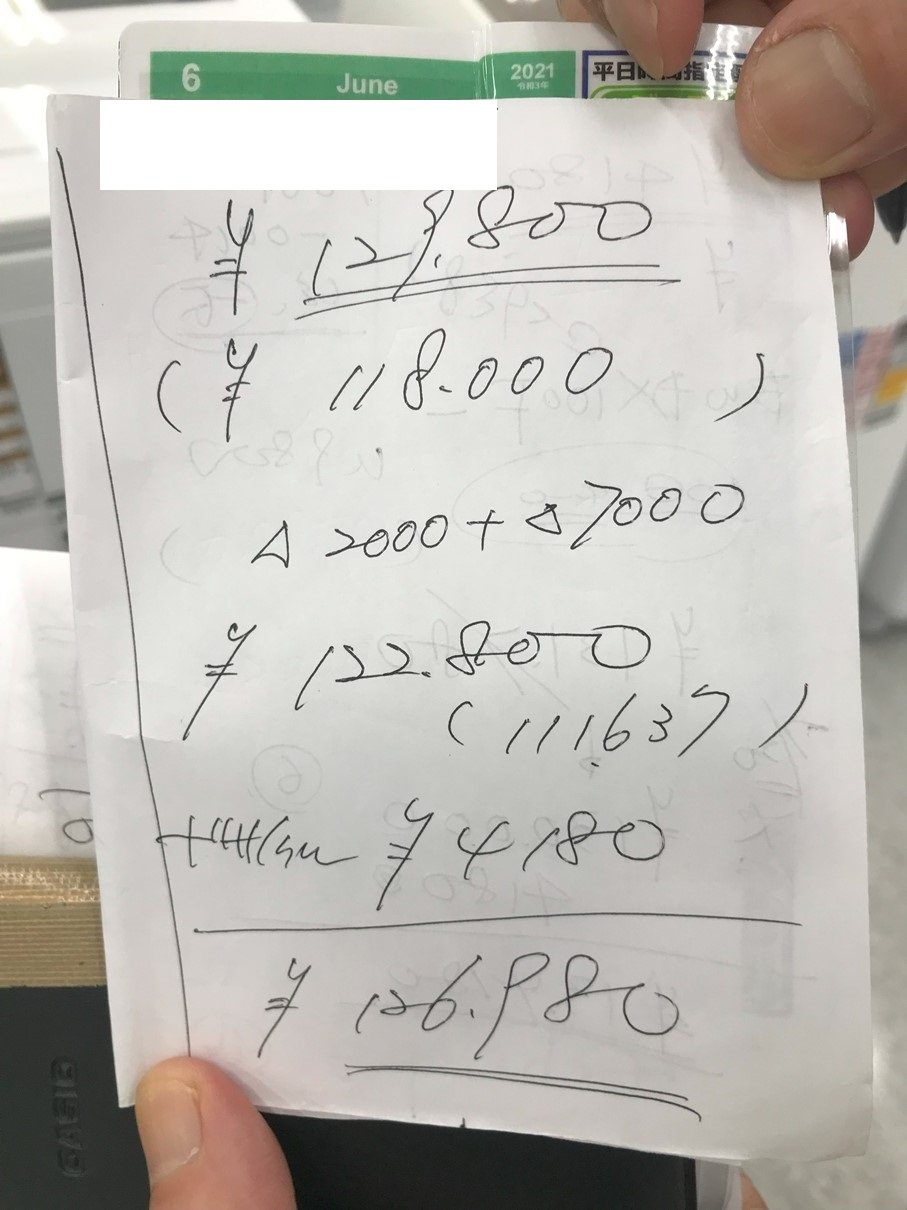 6 June 2021
令和3年
平日時間指定
¥ 129.800
(¥ 118.000)
△2000+△7000
¥ 122.800
(111.637)
¥4180
¥ 126.980